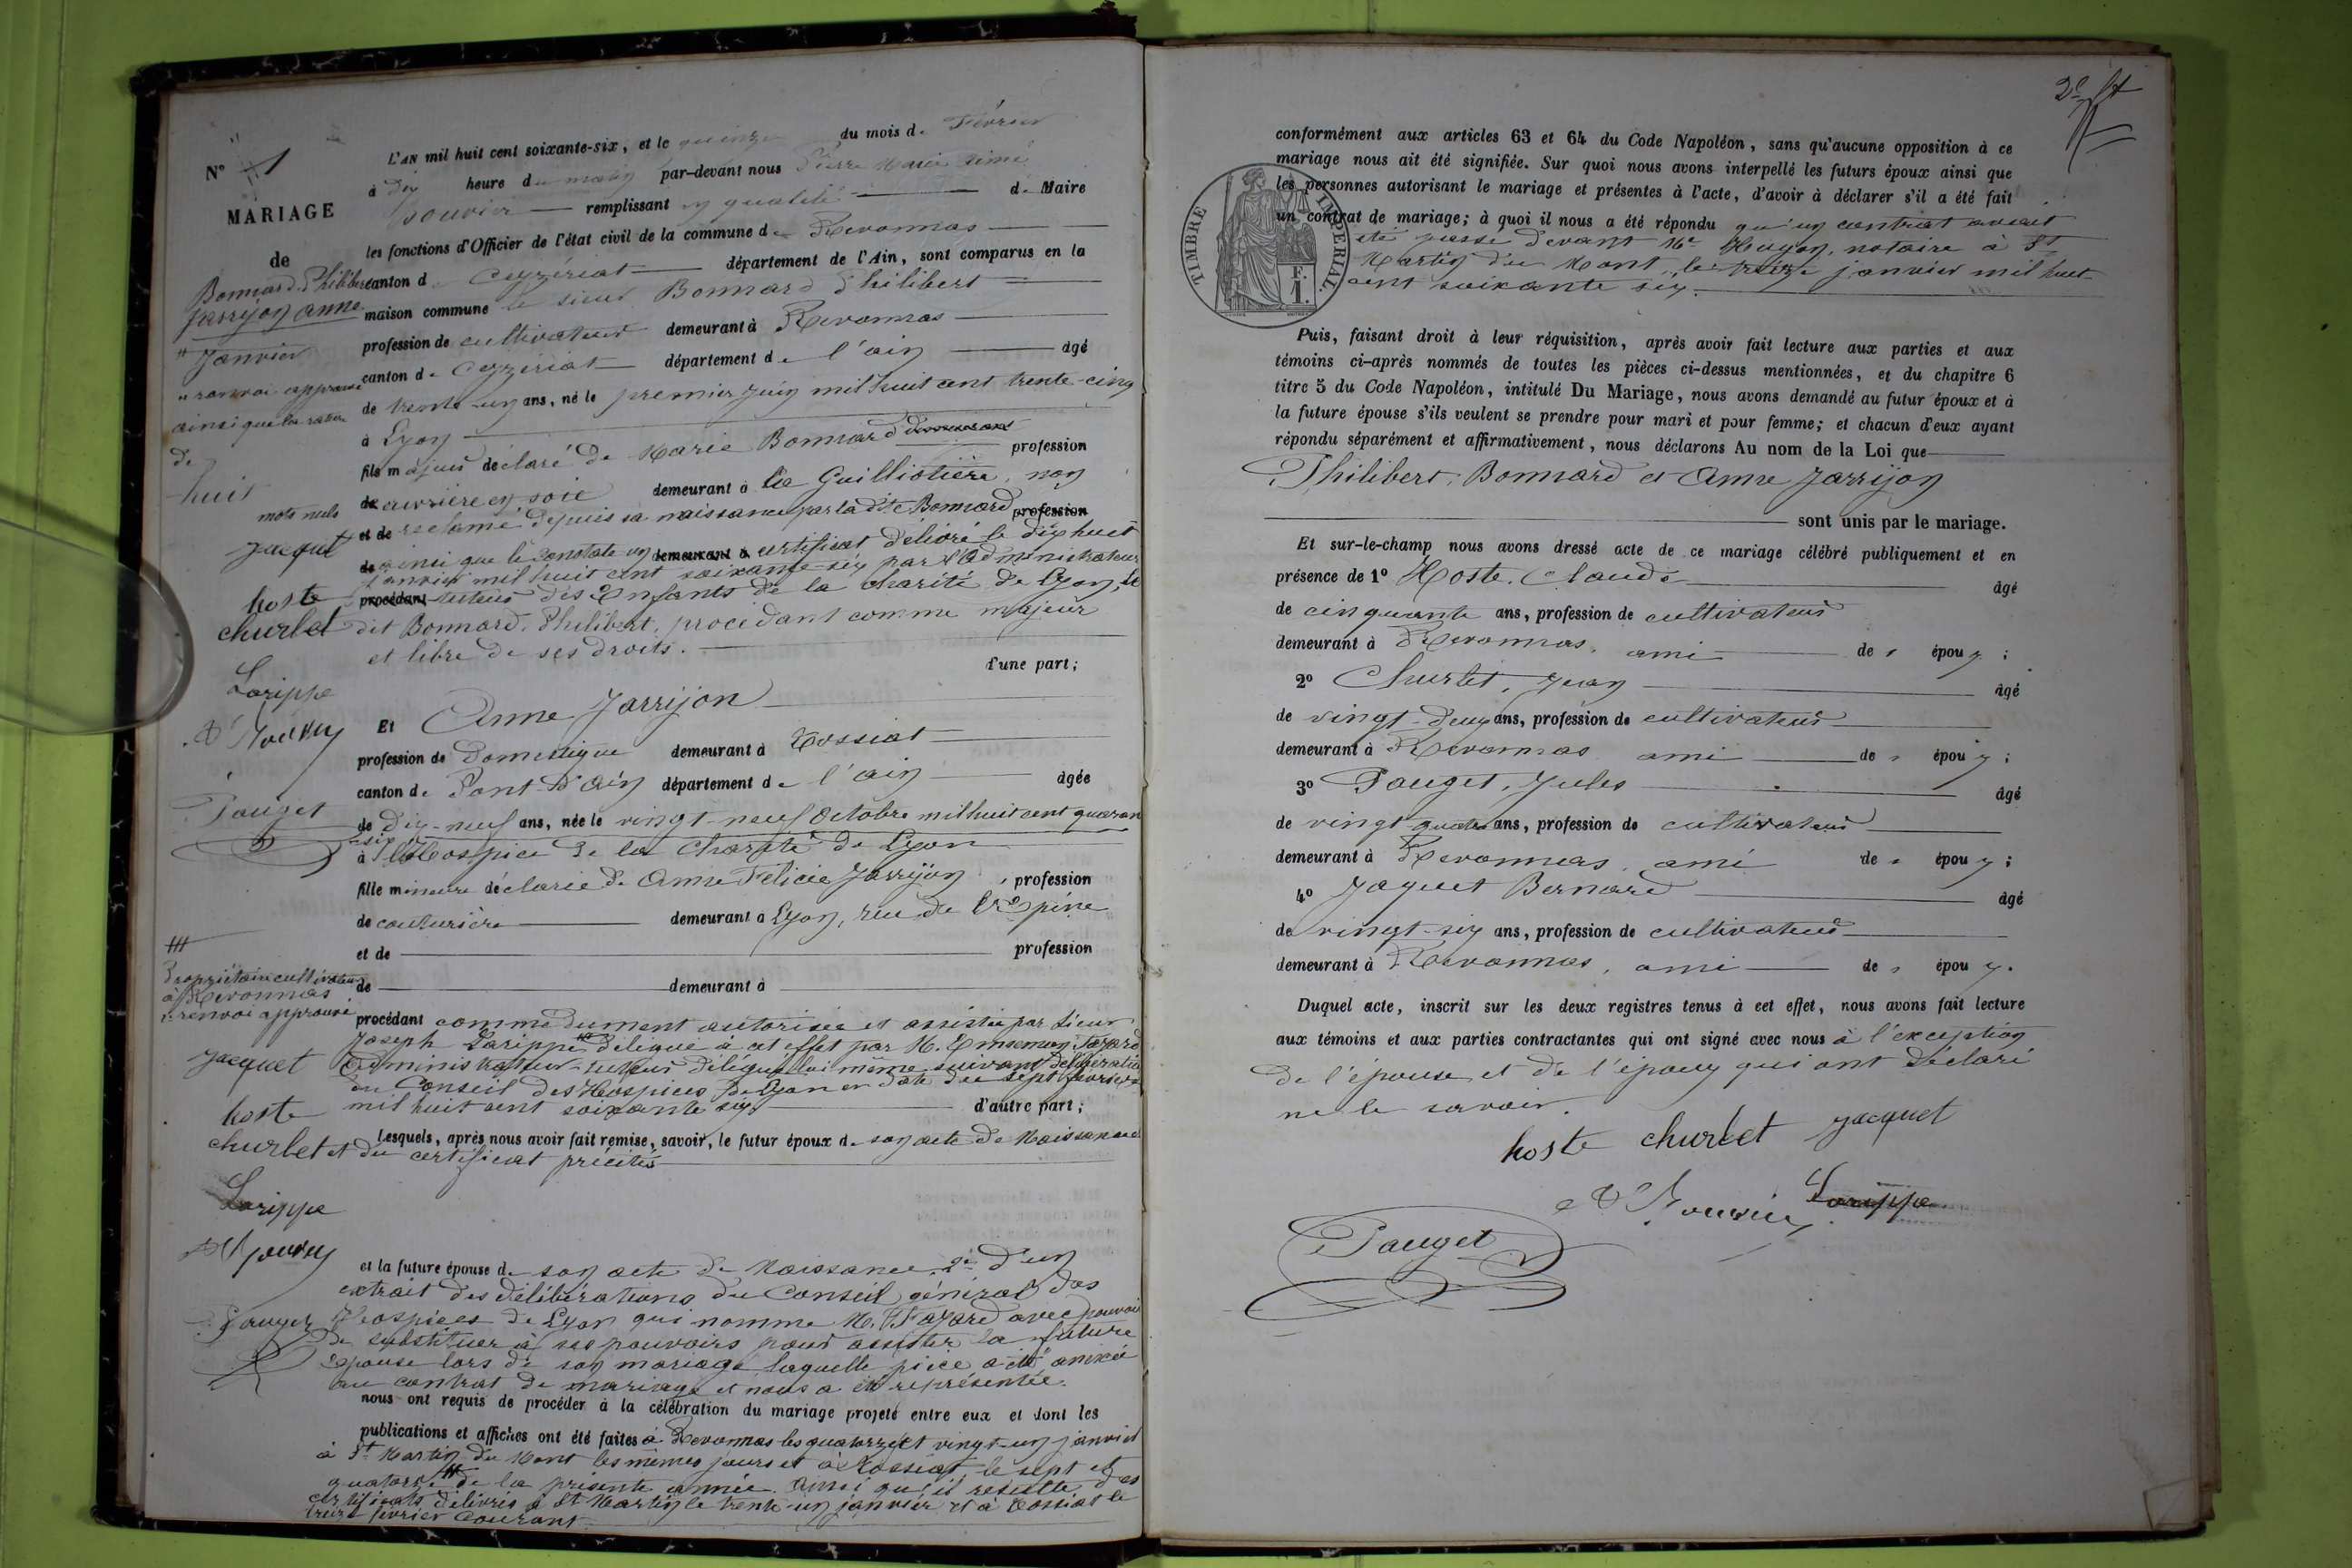 L'AN mil huit cent soixante-six, et le quinze du mois de Février
à dix heure du matin par-devant nous Pierre Marie Aimé
remplissant en qualité de Maire
les fonctions d'Officier de l'état civil de la commune de Revonnas
canton de Ceyzériat département de l'Ain, sont comparus en la
maison commune le sieur Bonnard Philibert
profession de cultivateur demeurant à Revonnas
canton de Ceyzériat département de l'ain âgé
de trente-un ans, né le premier juin mil huit cent trente-cinq
à Lyon
fils majeur déclaré de Marie Bonnard profession
de ouvrière en soie demeurant à la Guillotière, non
et de reclamé depuis sa naissance par la dite Bonnard profession
de ainsi que le constate un demeurant à certificat délivré le dix huit
janvier mil huit cent soixante-six par l'administrateur
procédant tuteur des Enfants de la charité de Lyon, le
dit Bonnard, Philibert, procédant comme majeur
et libre de ses droits.
d'une part;
Et Anne Jarrijon
profession de Domestique demeurant à Tossiat
canton de Pont-d'Ain département de l'ain âgée
de dix-neuf ans, née le vingt-neuf octobre mil huit cent quaran
te six
à l'Hospice de la Charité de Lyon
fille mineure déclarée de Anne Félicie Jarrijon, profession
de couturière demeurant à Lyon, rue de l'Epine
et de profession
de demeurant à
procédant comme dument autorisée et assistée par sieur
Joseph Larippe délégué à cet effet par M. Emsemon Fayard
Administrateur-tuteur délégué lui même suivant délibération
du Conseil des Hospices de Lyon en date du sept février
mil huit cent soixante six.
d'autre part;
Lesquels, après nous avoir fait remise, savoir, le futur époux de son acte de Naissance
et du certificat précités
et la future épouse de son acte de Naissance, 2° d'un
extrait des délibérations du Conseil général des
Hospices de Lyon qui nomme M. Fayard avec pouvoir
de substituer à ses pouvoirs pour assister la future
épouse lors de son mariage laquelle pièce a été anixée
au contrat de mariage et nous a été représentée.
nous ont requis de procéder à la célébration du mariage projeté entre eux et dont les
publications et affiches ont été faites à Revonnas les quatorze et vingt-un janvier
à St Martin du Mont les mêmes jours et à Tossiat, le sept et
quatorze # de la présente année. Ainsi qu'il resulte des
certificats délivrés à St Martin le trente-un janvier et à Tossiat le
treize février courant
N° 1
MARIAGE
de
Bonnard Philibert
Jarrijon anne
# Janvier
renvoi approuvé
ainsi que la rature
de
huit
mots nuls
jacquet
hoste
churlet
Larippe
Pauget
###
Propriétaire cultivateur
à Revonnas
renvoi approuvé
jacquet
hoste
churlet
Larippe
Pauget
2e ft
conformément aux articles 63 et 64 du Code Napoléon, sans qu'aucune opposition à ce
mariage nous ait été signifiée. Sur quoi nous avons interpellé les futurs époux ainsi que
les personnes autorisant le mariage et présentes à l'acte, d'avoir à déclarer s'il a été fait
un contrat de mariage; à quoi il nous a été répondu qu'un contrat avait
été passé devant Me Hugon, notaire à St
Martin du Mont, le treize janvier mil huit
cent soixante six.
TIMBRE IMPERIAL
F.
1.
Puis, faisant droit à leur réquisition, après avoir fait lecture aux parties et aux
témoins ci-après nommés de toutes les pièces ci-dessus mentionnées, et du chapitre 6
titre 5 du Code Napoléon, intitulé Du Mariage, nous avons demandé au futur époux et à
la future épouse s'ils veulent se prendre pour mari et pour femme; et chacun d'eux ayant
répondu séparément et affirmativement, nous déclarons Au nom de la Loi que
Philibert Bonnard et Anne Jarrijon
sont unis par le mariage.
Et sur-le-champ nous avons dressé acte de ce mariage célébré publiquement et en
présence de 1° Hoste, Claude âgé
de cinquante ans, profession de cultivateur
demeurant à Revonnas, ami de l' époux;
2° Churlet, Jean âgé
de vingt-deux ans, profession de cultivateur
demeurant à Revonnas ami de l' époux;
3° Pauget, Jules âgé
de vingt-quatre ans, profession de cultivateur
demeurant à Revonnas, ami de l' époux;
4° Jaquet Bernard âgé
de vingt-six ans, profession de cultivateur
demeurant à Revonnas, ami de l' époux.
Duquel acte, inscrit sur les deux registres tenus à cet effet, nous avons fait lecture
aux témoins et aux parties contractantes qui ont signé avec nous à l'exception
de l'épouse et de l'époux qui ont déclaré
ne le savoir.
hoste churlet jacquet
Larippe
Pauget